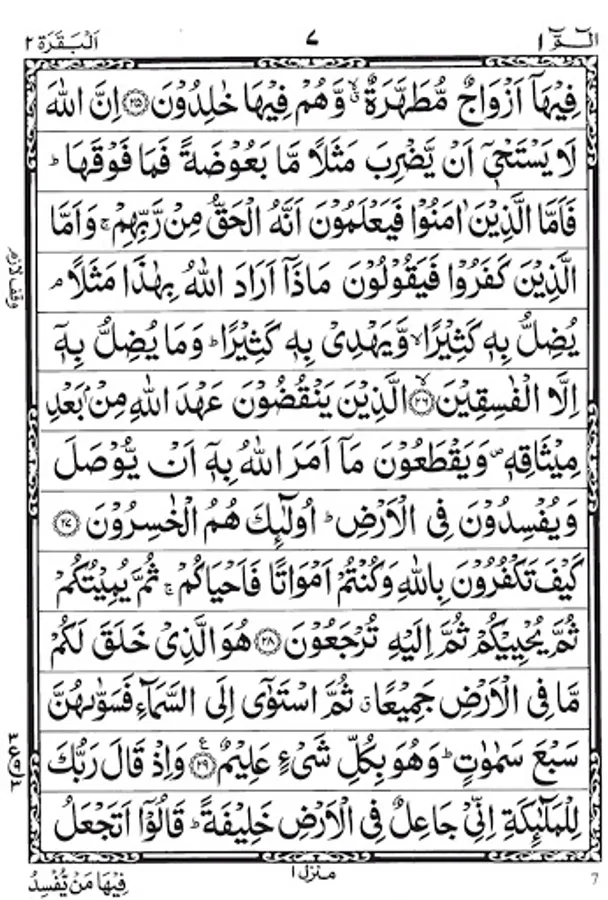 الٓمّٓ ١ ٧ اَلْبَقَرَة ٢
فِيْهَاۤ اَزْوَاجٌ مُّطَهَّرَةٌ ۙۗ وَّهُمْ فِيْهَا خٰلِدُوْنَ ﴿۲۵﴾ اِنَّ اللّٰهَ
لَا يَسْتَحْيٖۤ اَنْ يَّضْرِبَ مَثَلًا مَّا بَعُوْضَةً فَمَا فَوْقَهَا ؕ
فَاَمَّا الَّذِيْنَ اٰمَنُوْا فَيَعْلَمُوْنَ اَنَّهُ الْحَقُّ مِنْ رَّبِّهِمْ ۚ وَاَمَّا
الَّذِيْنَ كَفَرُوْا فَيَقُوْلُوْنَ مَاذَاۤ اَرَادَ اللّٰهُ بِهٰذَا مَثَلًا ۘ
وقف لازم
يُضِلُّ بِهٖ كَثِيْرًا ۙ وَّيَهْدِيْ بِهٖ كَثِيْرًا ؕ وَمَا يُضِلُّ بِهٖۤ
اِلَّا الْفٰسِقِيْنَ ۙ﴿۲۶﴾ الَّذِيْنَ يَنْقُضُوْنَ عَهْدَ اللّٰهِ مِنْۢ بَعْدِ
مِيْثَاقِهٖ ۪ وَيَقْطَعُوْنَ مَاۤ اَمَرَ اللّٰهُ بِهٖۤ اَنْ يُّوْصَلَ
وَيُفْسِدُوْنَ فِي الْاَرْضِ ؕ اُولٰٓئِكَ هُمُ الْخٰسِرُوْنَ ﴿۲۷﴾
كَيْفَ تَكْفُرُوْنَ بِاللّٰهِ وَكُنْتُمْ اَمْوَاتًا فَاَحْيَاكُمْ ۚ ثُمَّ يُمِيْتُكُمْ
ثُمَّ يُحْيِيْكُمْ ثُمَّ اِلَيْهِ تُرْجَعُوْنَ ﴿۲۸﴾ هُوَ الَّذِيْ خَلَقَ لَكُمْ
مَّا فِي الْاَرْضِ جَمِيْعًا ۗ ثُمَّ اسْتَوٰۤى اِلَى السَّمَآءِ فَسَوّٰىهُنَّ
سَبْعَ سَمٰوٰتٍ ؕ وَهُوَ بِكُلِّ شَيْءٍ عَلِيْمٌ ﴿۲۹﴾ ع وَاِذْ قَالَ رَبُّكَ
لِلْمَلٰٓئِكَةِ اِنِّيْ جَاعِلٌ فِي الْاَرْضِ خَلِيْفَةً ؕ قَالُوْۤا اَتَجْعَلُ
منزل ١
فِيْهَا مَنْ يُّفْسِدُ
7